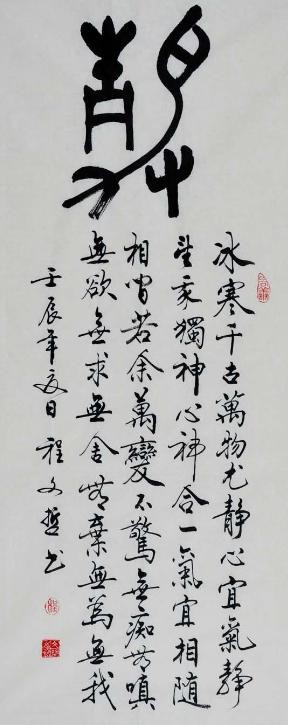 靜
冰寒千古萬物尤靜心宜氣靜
望我獨神心神合一氣宜相隨
相間若余萬變不驚無痴無嗔
無欲無求無舍無棄無為無我
壬辰年夏日程文哲书